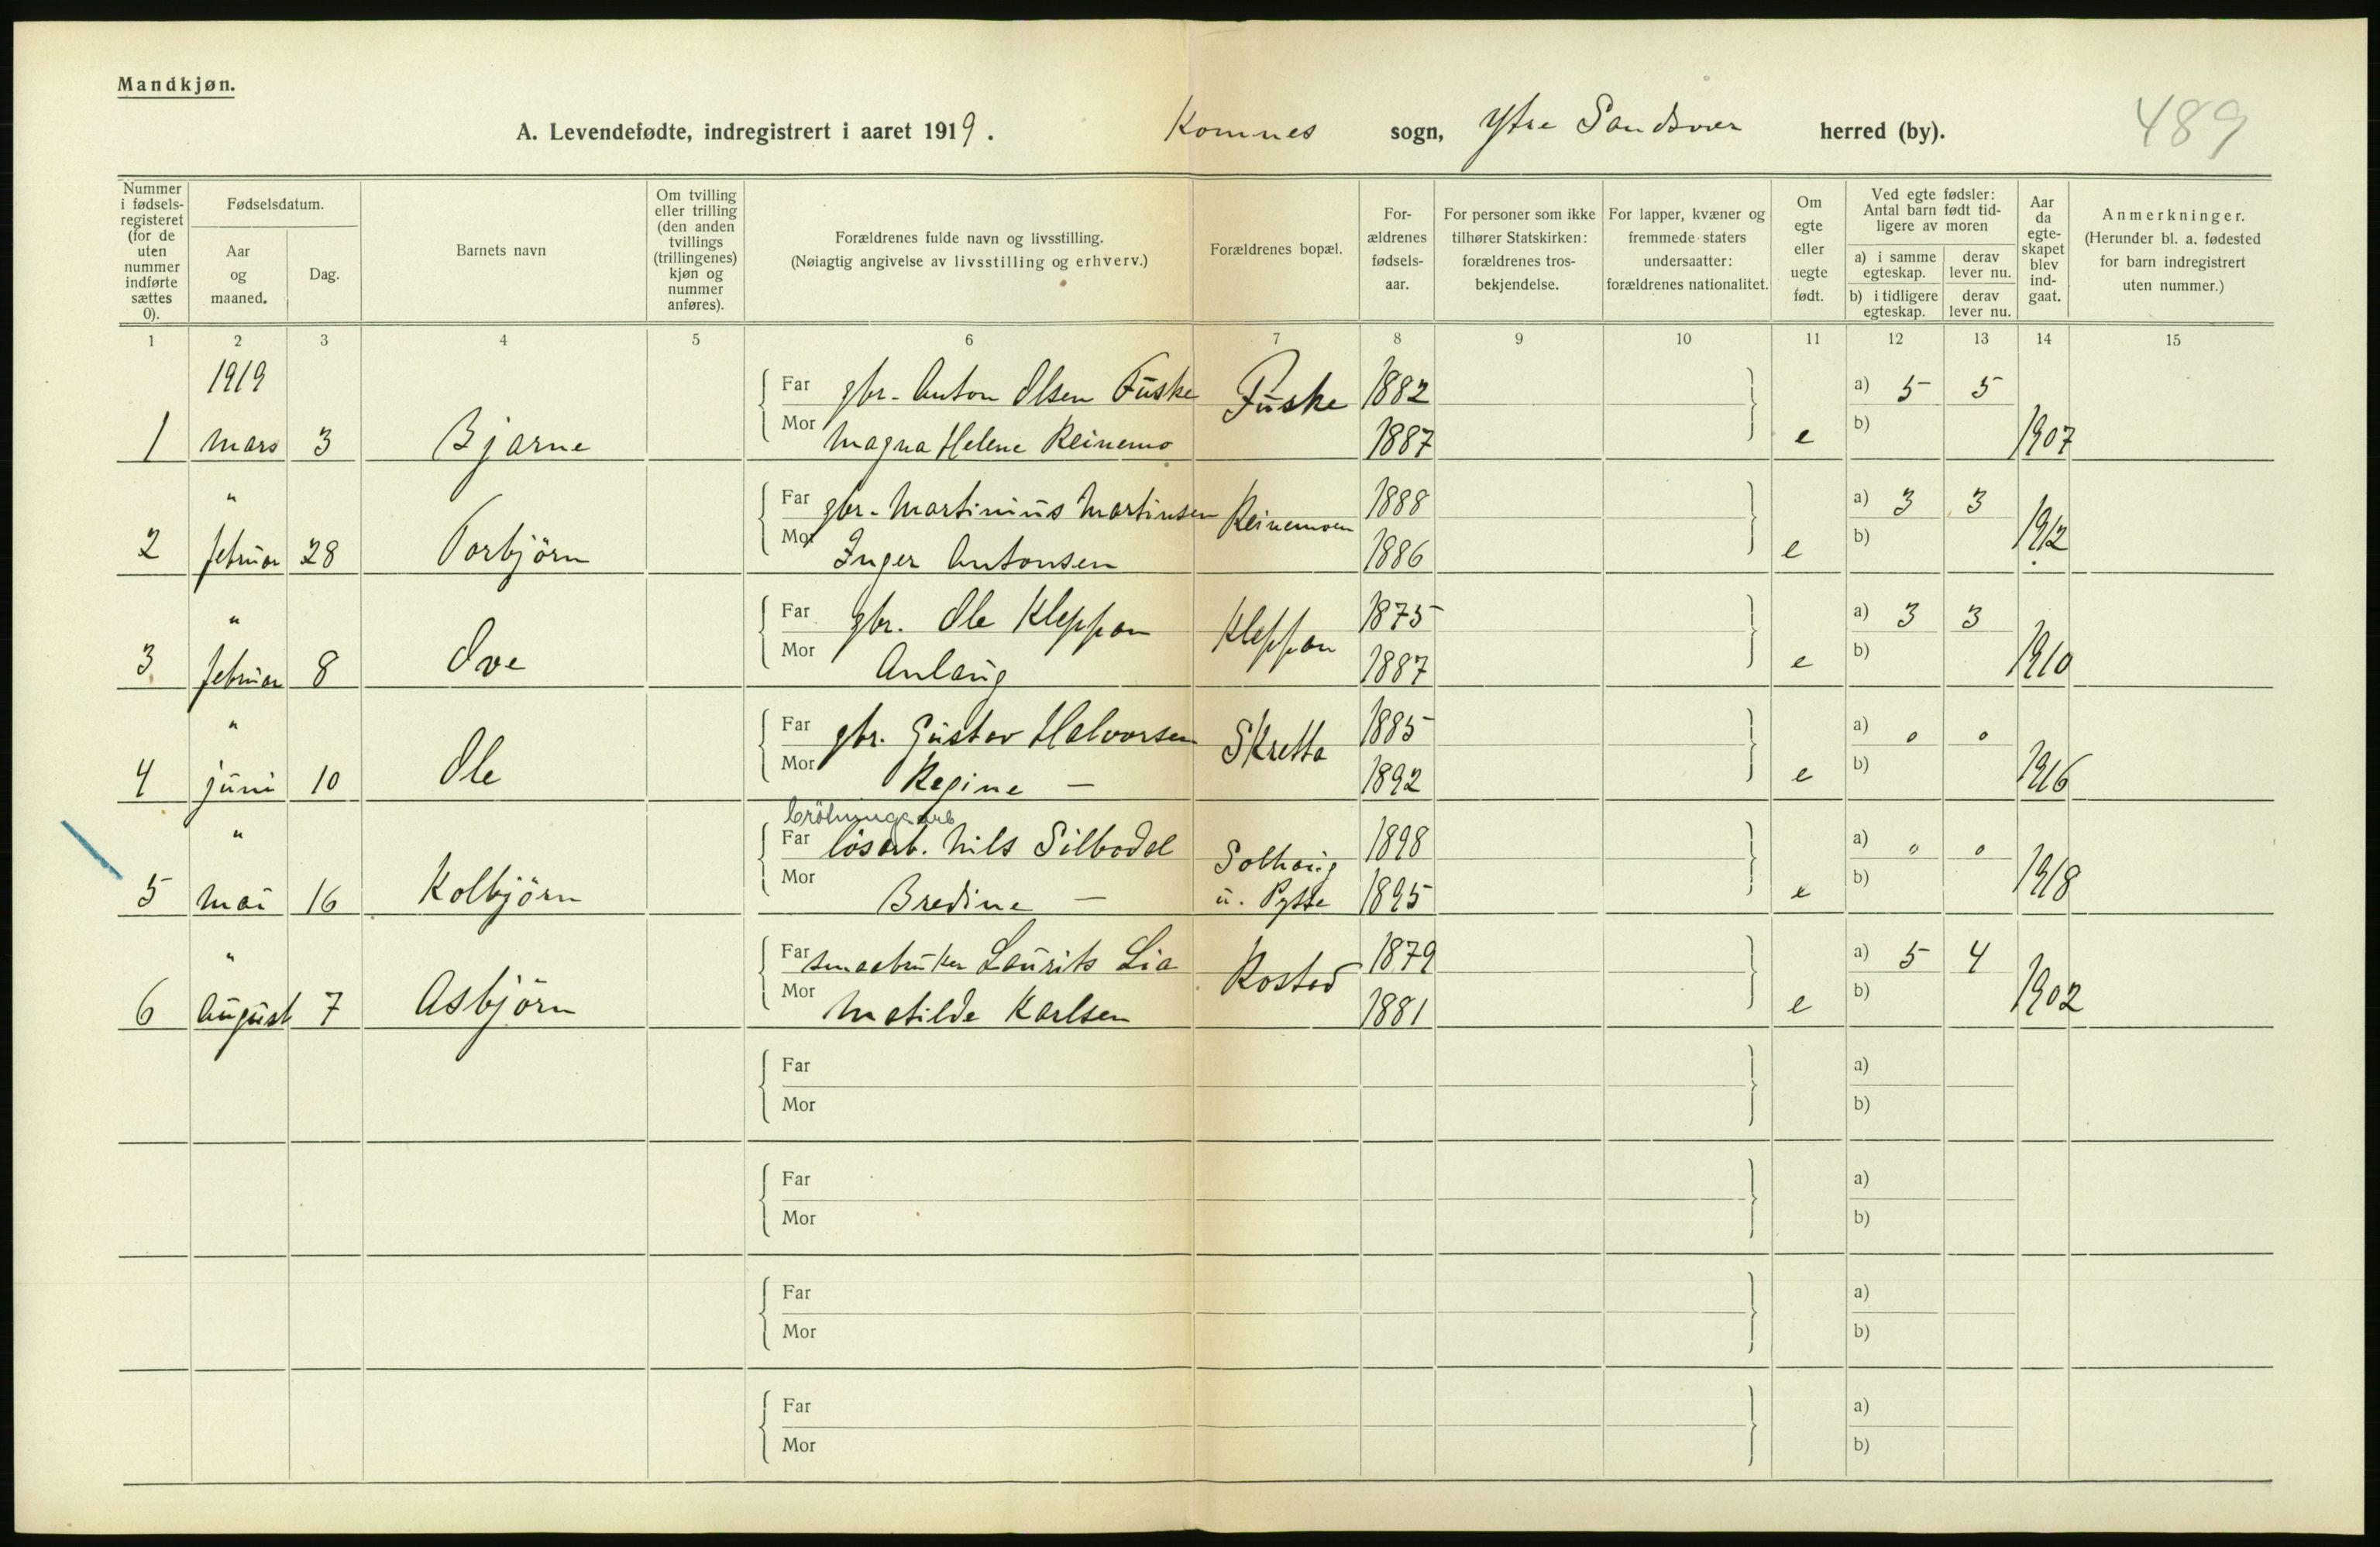 Mandkjøn.
A. Levendefødte, indregistrert i aaret 1919. Komnes sogn, Ytre Sandsvær herred (by). 489
Nummer i fødsels-registeret (for de uten nummer indførte sættes 0).
Fødselsdatum.
Aar og maaned.
Dag.
Barnets navn
Om tvilling eller trilling (den anden tvillings (trillingenes) kjøn og nummer anføres).
Forældrenes fulde navn og livsstilling.
(Nøiagtig angivelse av livsstilling og erhverv.)
Forældrenes bopæl.
For-ældrenes fødsels-aar.
For personer som ikke tilhører Statskirken: forældrenes tros-bekjendelse.
For lapper, kvæner og fremmede staters undersaatter: forældrenes nationalitet.
Om egte eller uegte født.
Ved egte fødsler: Antal barn født tid-ligere av moren
a) i samme egteskap.
derav lever nu.
b) i tidligere egteskap.
derav lever nu.
Aar da egte-skapet blev ind-gaat.
Anmerkninger.
(Herunder bl. a. fødested for barn indregistrert uten nummer.)
1 2 3 4 5 6 7 8 9 10 11 12 13 14 15
1919 Far gbr. Anton Olsen Fuske Fuske 1882 a) 5 5
1 mars 3 Bjarne Mor Magna Helene Reinemo 1887 e b) 1907
" Far gbr. Martinius Martinsen Reinemoen 1888 a) 3 3
2 februar 28 Torbjörn Mor Inger Antonsen 1886 e b) 1912
" Far gbr. Ole Kleppan Kleppan 1875 a) 3 3
3 februar 8 Ove Mor Anlaug 1887 e b) 1910
" Far gbr. Gustav Halvorsen Skretta 1885 a) 0 0
4 juni 10 Ole Mor Regine — 1892 e b) 1916
" Far løsarb. Nils Silbodal Solhaug 1898 a) 0 0
5 mai 16 Kolbjörn Mor Bredine — u. Pytte 1895 e b) 1918
" Far smaabruker Laurits Lia Rostad 1879 a) 5 4
6 August 7 Asbjörn Mor Matilde Karlsen 1881 e b) 1902
Far a)
Mor b)
Far a)
Mor b)
Far a)
Mor b)
Far a)
Mor b)